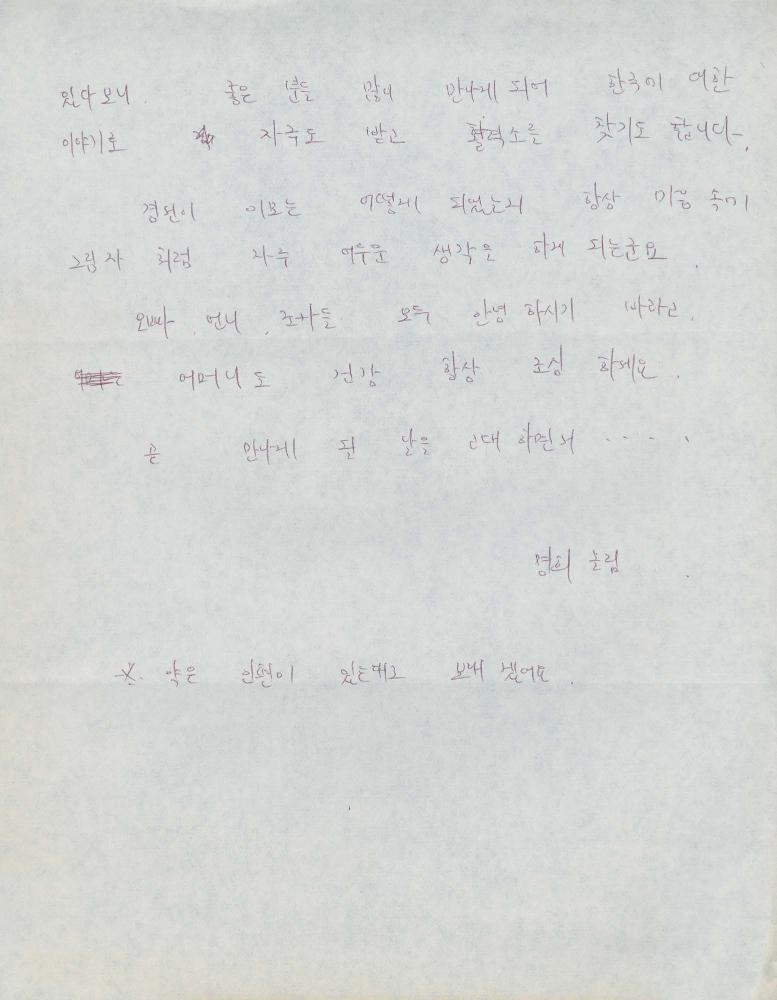 있다 보니. 좋은 분들 많이 만나게 되어 한국에 대한
이야기로 자극도 받고 활력소를 찾기도 합니다.
경원이 이모는 어떻게 되었는지 항상 마음 속에
그림자 처럼 자주 어두운 생각을 하게 되는군요.
오빠, 언니, 조카들 모두 안녕 하시기 바라고.
어머니도 건강 항상 조심 하세요.
곧 만나게 될 날을 고대 하면서 ....
명희 논림.
※. 약은 인편이 있는대로 보내 겠어요.